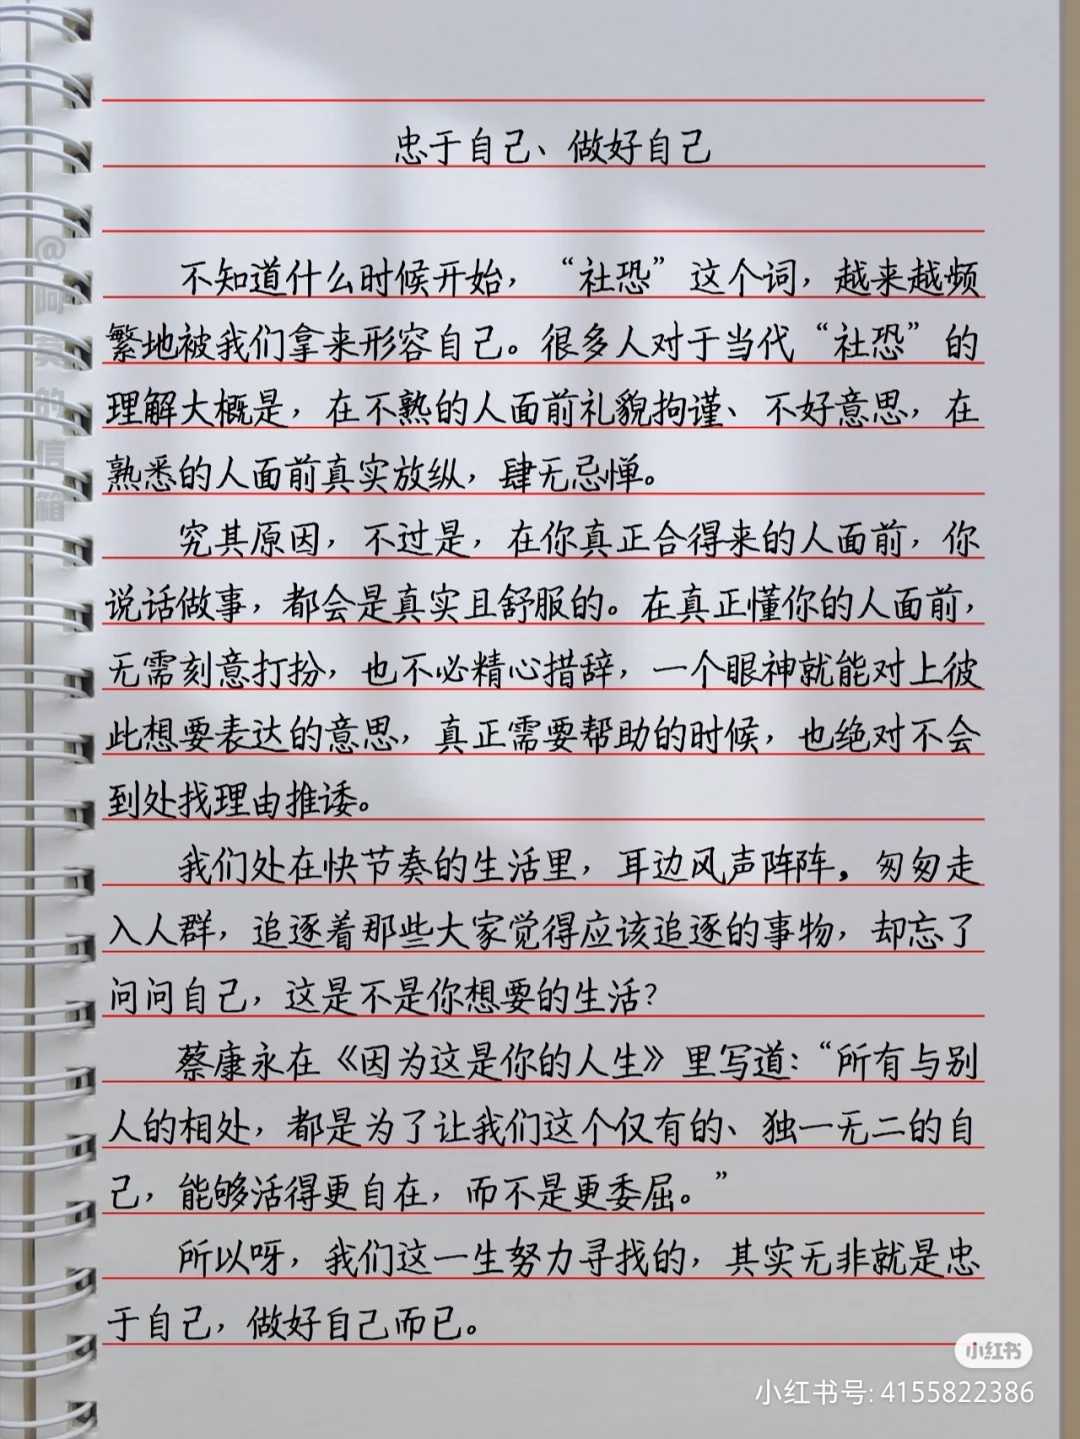 忠于自己、做好自己
不知道什么时候开始，“社恐”这个词，越来越频
繁地被我们拿来形容自己。很多人对于当代“社恐”的
理解大概是，在不熟的人面前礼貌拘谨、不好意思，在
熟悉的人面前真实放纵，肆无忌惮。
究其原因，不过是，在你真正合得来的人面前，你
说话做事，都会是真实且舒服的。在真正懂你的人面前，
无需刻意打扮，也不必精心措辞，一个眼神就能对上彼
此想要表达的意思，真正需要帮助的时候，也绝对不会
到处找理由推诿。
我们处在快节奏的生活里，耳边风声阵阵，匆匆走
入人群，追逐着那些大家觉得应该追逐的事物，却忘了
问问自己，这是不是你想要的生活？
蔡康永在《因为这是你的人生》里写道：“所有与别
人的相处，都是为了让我们这个仅有的、独一无二的自
己，能够活得更自在，而不是更委屈。”
所以呀，我们这一生努力寻找的，其实无非就是忠
于自己，做好自己而已。
@阿英的信箱
小红书
小红书号: 4155822386